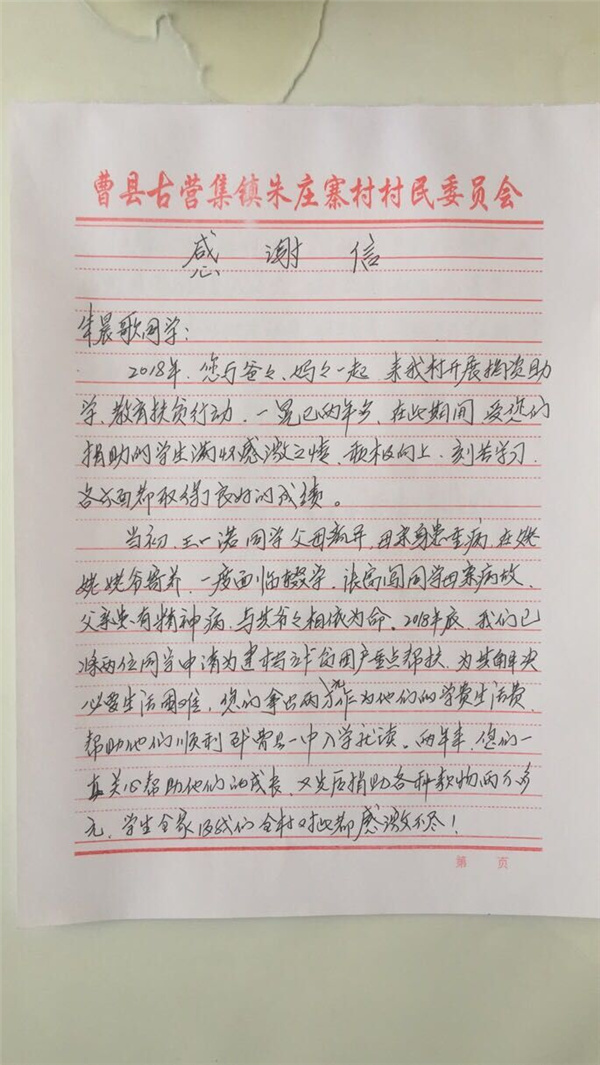 曹县古营集镇朱庄寨村村民委员会
感谢信
牟晨歌同学：
2018年，您与爸々、妈々一起，来我村开展捐资助
学、教育扶贫行动，一晃已两年多，在此期间，受您们
捐助的学生满怀感激之情，积极向上，刻苦学习，
各方面都取得了良好的成绩。
当初，王一诺同学父母离异，母亲身患重病，在姥
姥姥爷寄养，一度面临辍学。张高闯同学母亲病故、
父亲患有精神病，与其爷々相依为命。2018年底，我们已
将两位同学申请为建档立卡贫困户重点帮扶，为其解决
必要生活困难，您们拿出两万元作为他们的学费生活费，
帮助他们顺利到曹县一中入学就读。两年来，您们一
直关心帮助他们的成长，又先后捐助各种款物两万多
元，学生全家及我们全村对此都感激不尽！
第 页